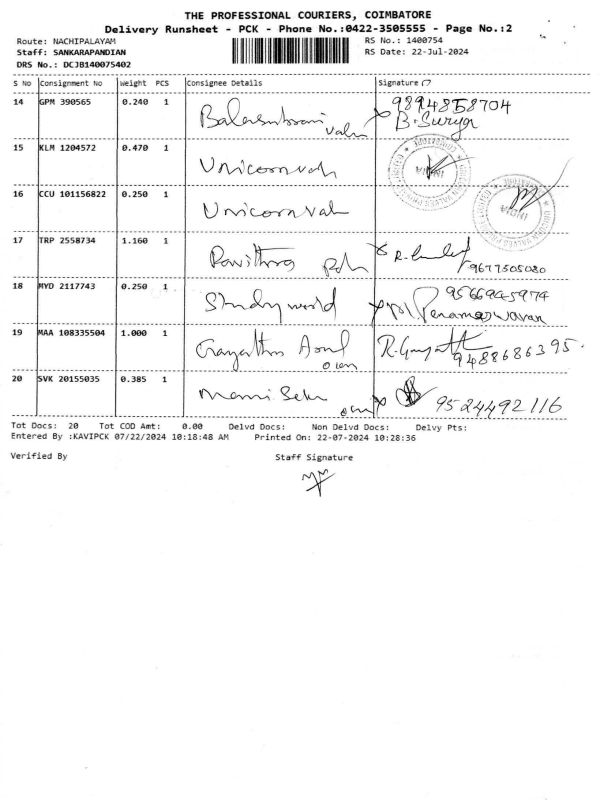 THE PROFESSIONAL COURIERS, COIMBATORE
Delivery Runsheet - PCK - Phone No.:0422-3505555 - Page No.:2
Route: NACHIPALAYAM RS No.: 1400754
Staff: SANKARAPANDIAN RS Date: 22-Jul-2024
DRS No.: DCJB140075402
S No Consignment No Weight PCS Consignee Details Signature
14 GPM 390565 0.240 1 9894858704
B. Surya
15 KLM 1204572 0.470 1 Unicornvah
16 CCU 101156822 0.250 1 Unicornvah
INDIA
INDIA
17 TRP 2558734 1.160 1 Pavithra
9677505080
18 MYD 2117743 0.250 1 Study world 9566945974
Parameswaran
19 MAA 108335504 1.000 1 Gayathri R. Gayatt
9488686395.
20 SVK 20155035 0.385 1 9524492116
Tot Docs: 20 Tot COD Amt: 0.00 Delvd Docs: Non Delvd Docs: Delvy Pts:
Entered By :KAVIPCK 07/22/2024 10:18:48 AM Printed On: 22-07-2024 10:28:36
Verified By Staff Signature